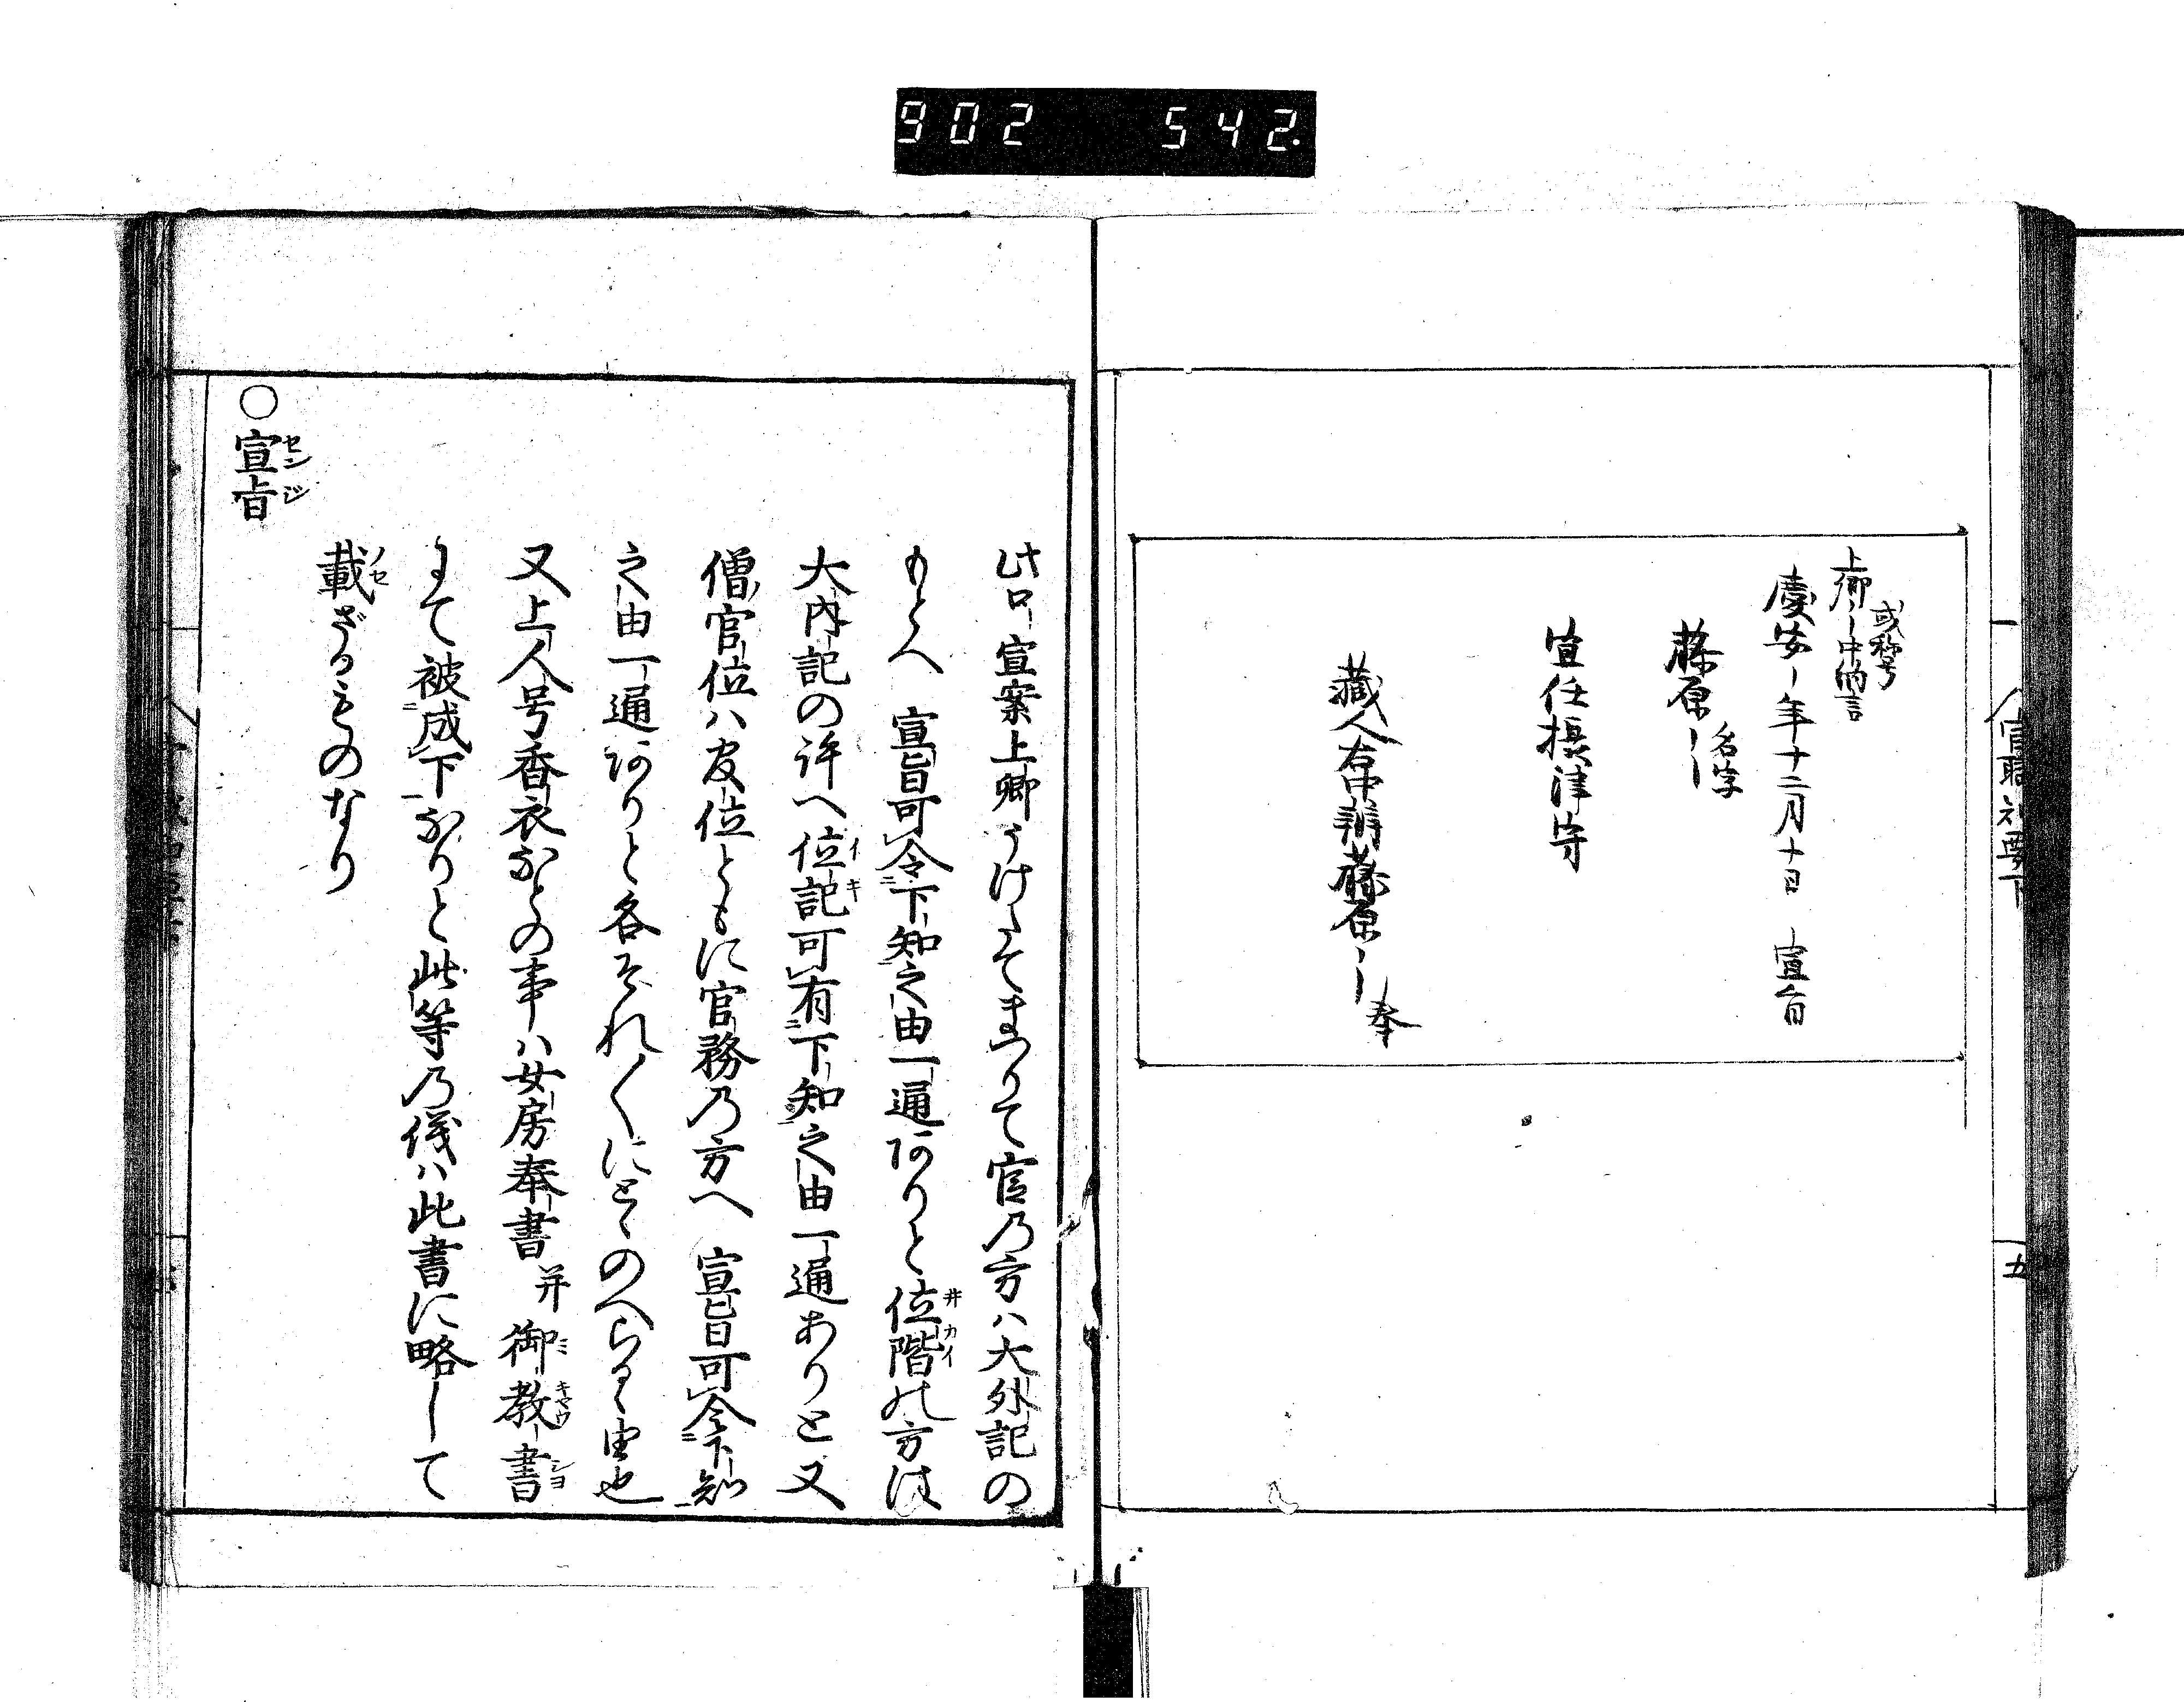 902 542.
官職知要下
五
上卿〻中納言
或称号
慶安〻年十二月十日 宣旨
藤原〻〻
名字
宣任摂津守
蔵人右中辨藤原〻〻奉
此口宣案上卿うけたまハりて官乃方ハ大外記の
もとへ 宣旨可令下知之由一通ありと位階の方は
大内記の許へ位記可有下知之由一通ありと又
僧官位ハ官位ともに官務乃方へ 宣旨可令下知
之由一通ありと各それ〳〵にとゝのへらるゝ由也
又上人号香衣なとの事ハ女房奉書并御教書
にて被成下なりと此等乃儀ハ此書に略して
載ざるものなり
○宣旨